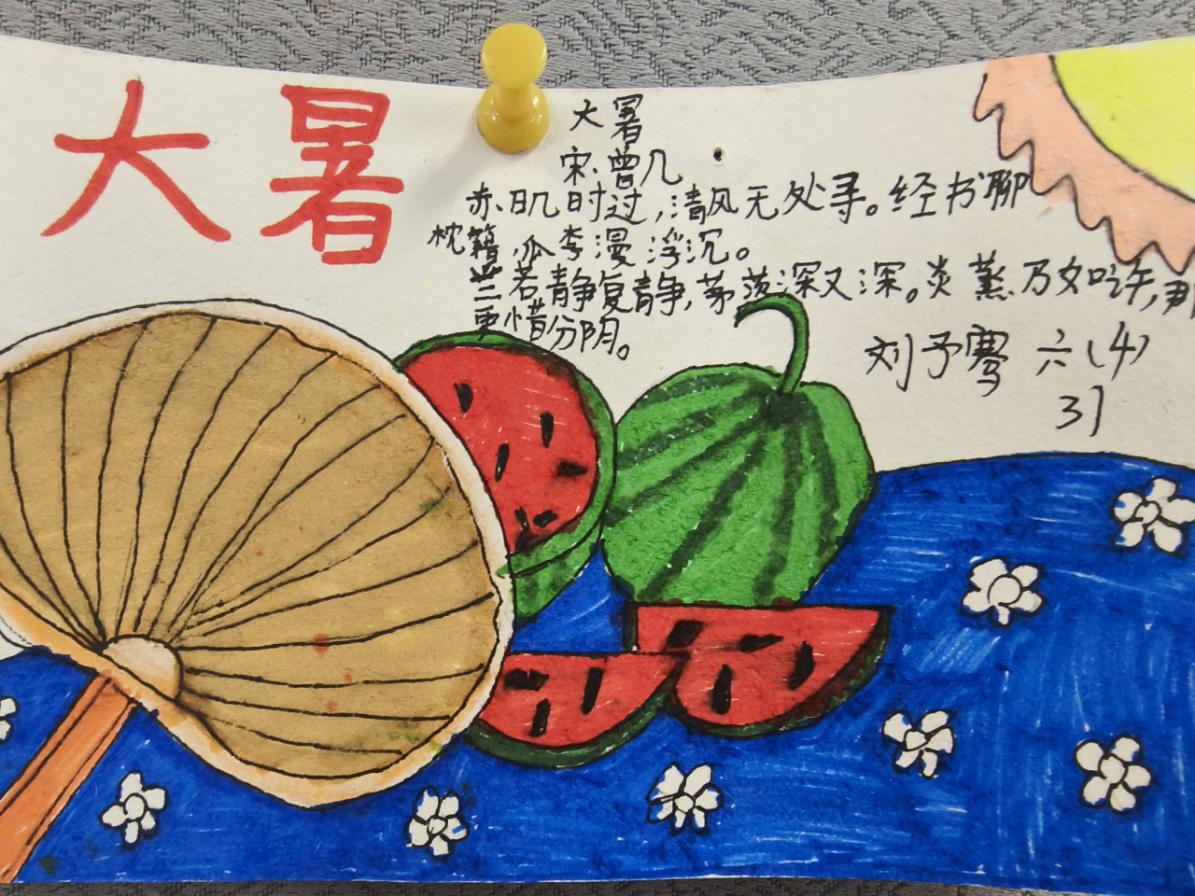 大暑
大暑
宋·曾几
赤日几时过,清风无处寻。经书聊
枕籍,瓜李漫浮沉。
兰若静复静,茅茨深又深。炎蒸乃如许,
更惜分阴。
刘予骞 六(4)
31